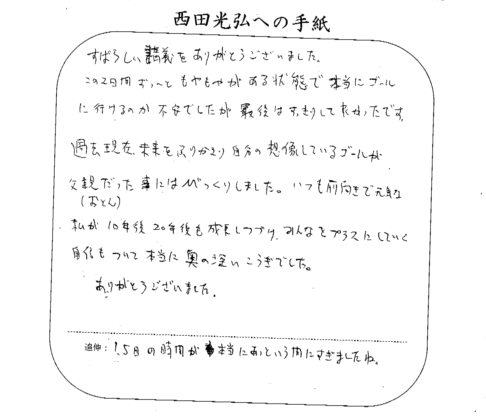 西田光弘への手紙
すばらしい講義をありがとうございました。
この2日間ずーっともやもやがある状態で本当にゴール
に行けるのか不安でしたが最後はすっきりして良かったです。
過去、現在、未来をふりかえり自分の想像しているゴールが
父親だった事にはびっくりしました。いつも前向きで元気な
(おとん)
私が10年後20年後も成長しつづけ、みんなをプラスにしていく
自信もついて本当に奥の深いこうぎでした。
ありがとうございました。
追伸:1.5日の時間が本当にあっという間にすぎましたね。